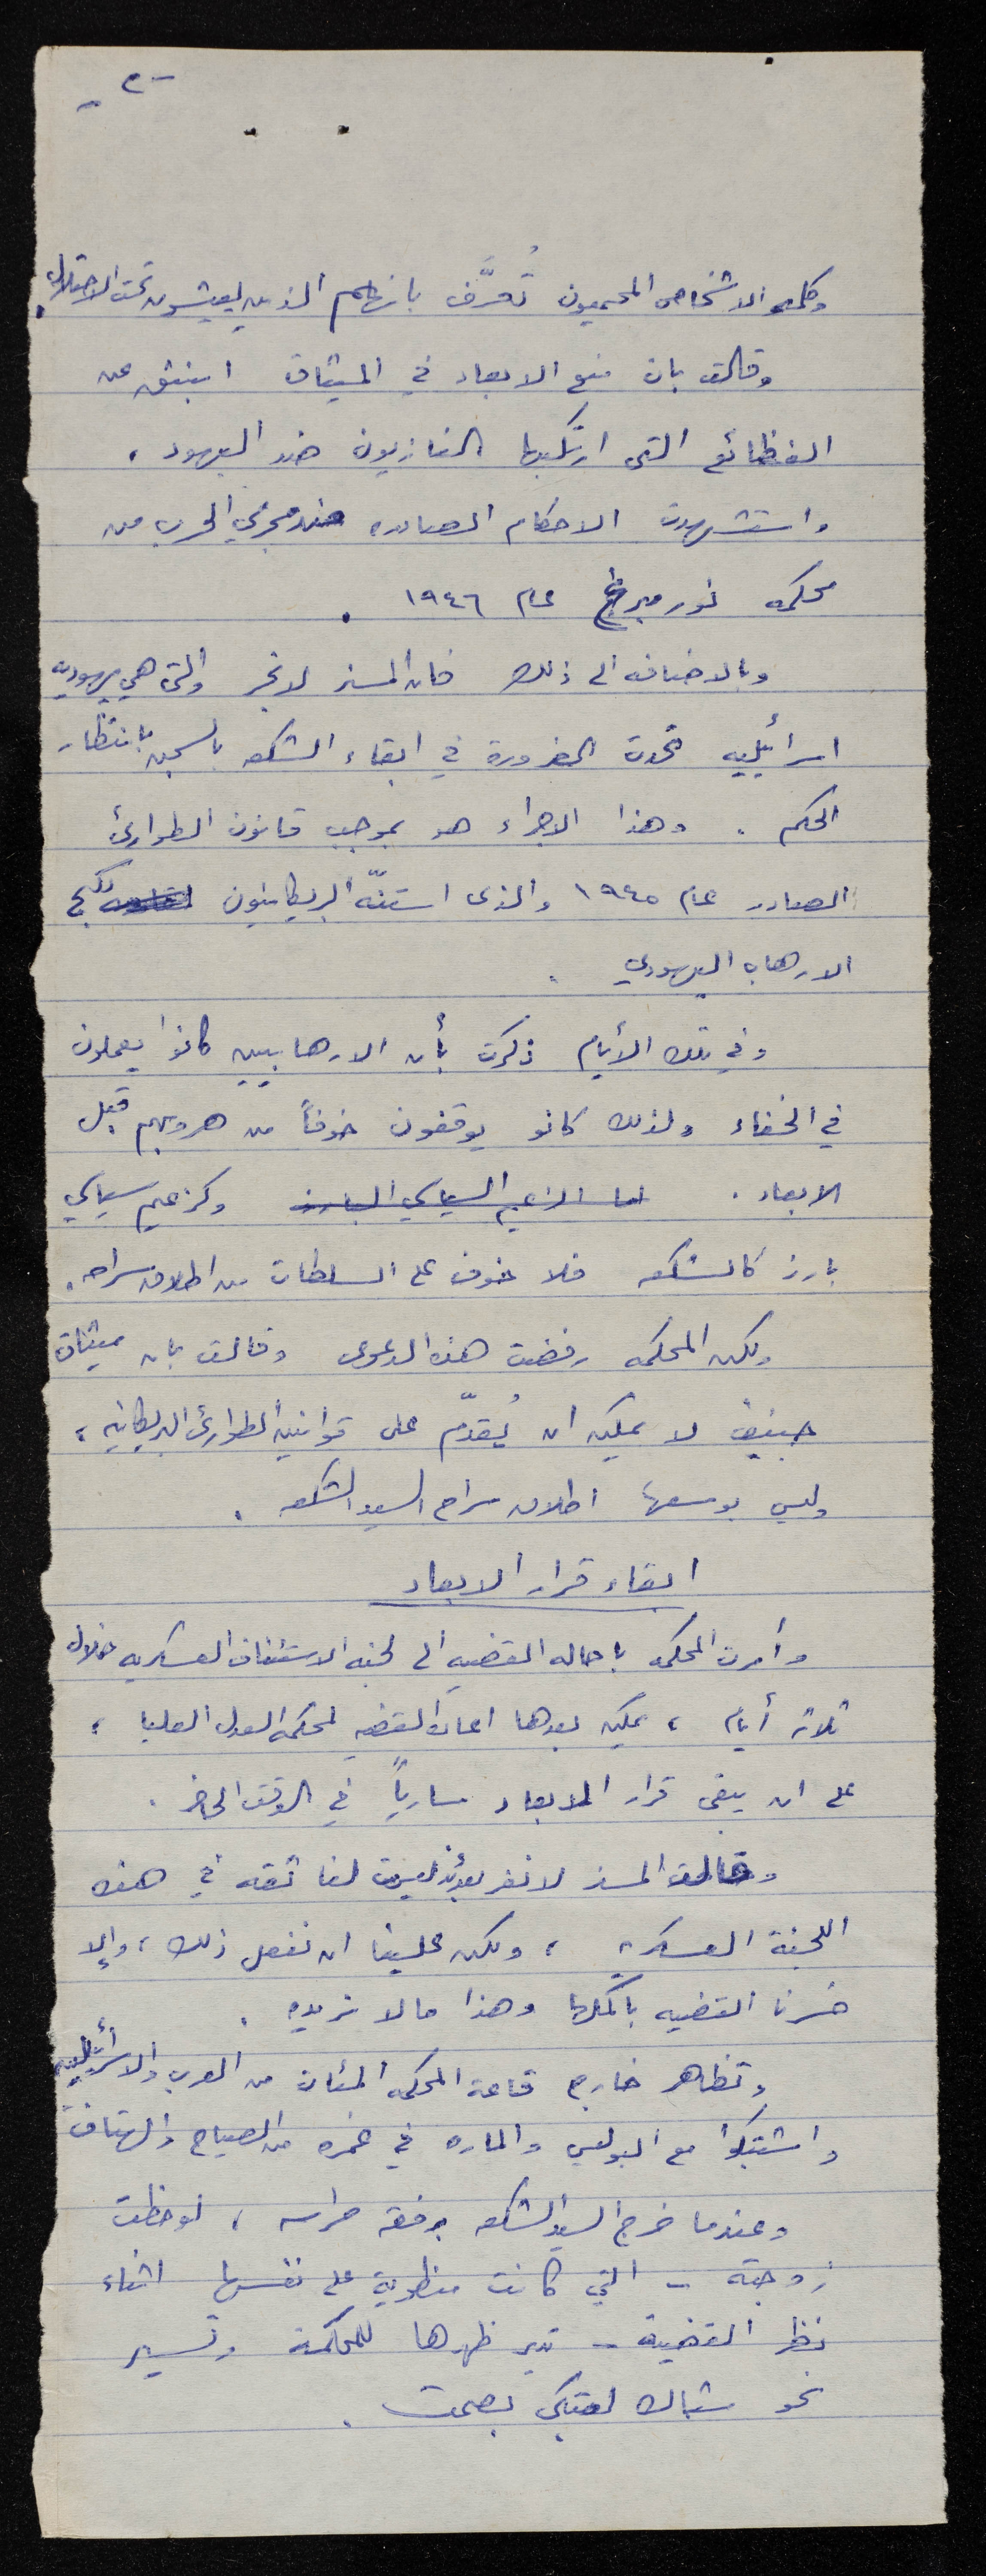 - ٢ -
وكلمة الاشخاص المحميون تُعرَّف بانهم الذين يعيشون تحت الاحتلال.
وقالت بان منع الابعاد في الميثاق انبثق عن
الفظائع التي ارتكبها النازيون ضد اليهود ،
واستشهدت الاحكام الصادره ضد مجرمي الحرب من
محكمه نورمبرغ عام ١٩٤٦ .
وبالاضافه الى ذلك فان المسز لانجر والتي هي يهوديه
اسرائيليه تحدت الضرورة في ابقاء الشكعه بالسجن بانتظار
الحكم . وهذا الاجراء هو بموجب قانون الطوارئ
الصادر عام ١٩٤٥ والذي استنّه البريطانيون لكبح
الارهاب اليهودي .
وفي تلك الأيام ذكرت بأن الارهابيين كانوا يعملون
في الخفاء ولذلك كانو يوقفون خوفاً من هروبهم قبل
الابعاد . اما الزعيم السياسي البارز وكزعيم سياسي
بارز كالشكعه فلا خوف على السلطات من اطلاق سراحه .
ولكن المحكمه رفضت هذه الدعوى وقالت بان ميثاق
جنيف لا يمكن ان يُقدّم على قوانين الطوارئ البريطانيه ،
وليس بوسعها اطلاق سراح السيد الشكعه .
ابقاء قرار الابعاد
وأمرت المحكمه باحاله القضيه الى لجنه الاستئناف العسكريه خلال
ثلاثة أيام ، يمكن بعدها اعادة القضيه لمحكمه العدل العليا ،
على ان يبقى قرار الابعاد سارياً في الوقت الحاضر .
وقالت المسز لانغر ليست لنا ثقه في هذه
اللجنة العسكريه ، ولكن علينا ان نفعل ذلك ، وإلا
خسرنا القضيه بأكملها وهذا ما لا نريده .
وتظاهر خارج قاعة المحكمه المئات من العرب والاسرائيليين
واشتبكوا مع البوليس والماره في غمره من الصياح والهتاف
وعندما خرج السيد الشكعه برفقه حراسه ، لوحظت
زوجته - التي كانت منطوية على نفسها اثناء
نظر القضية - تدير ظهرها للمحكمة وتسير
نحو شباك لتبكي بصمت .